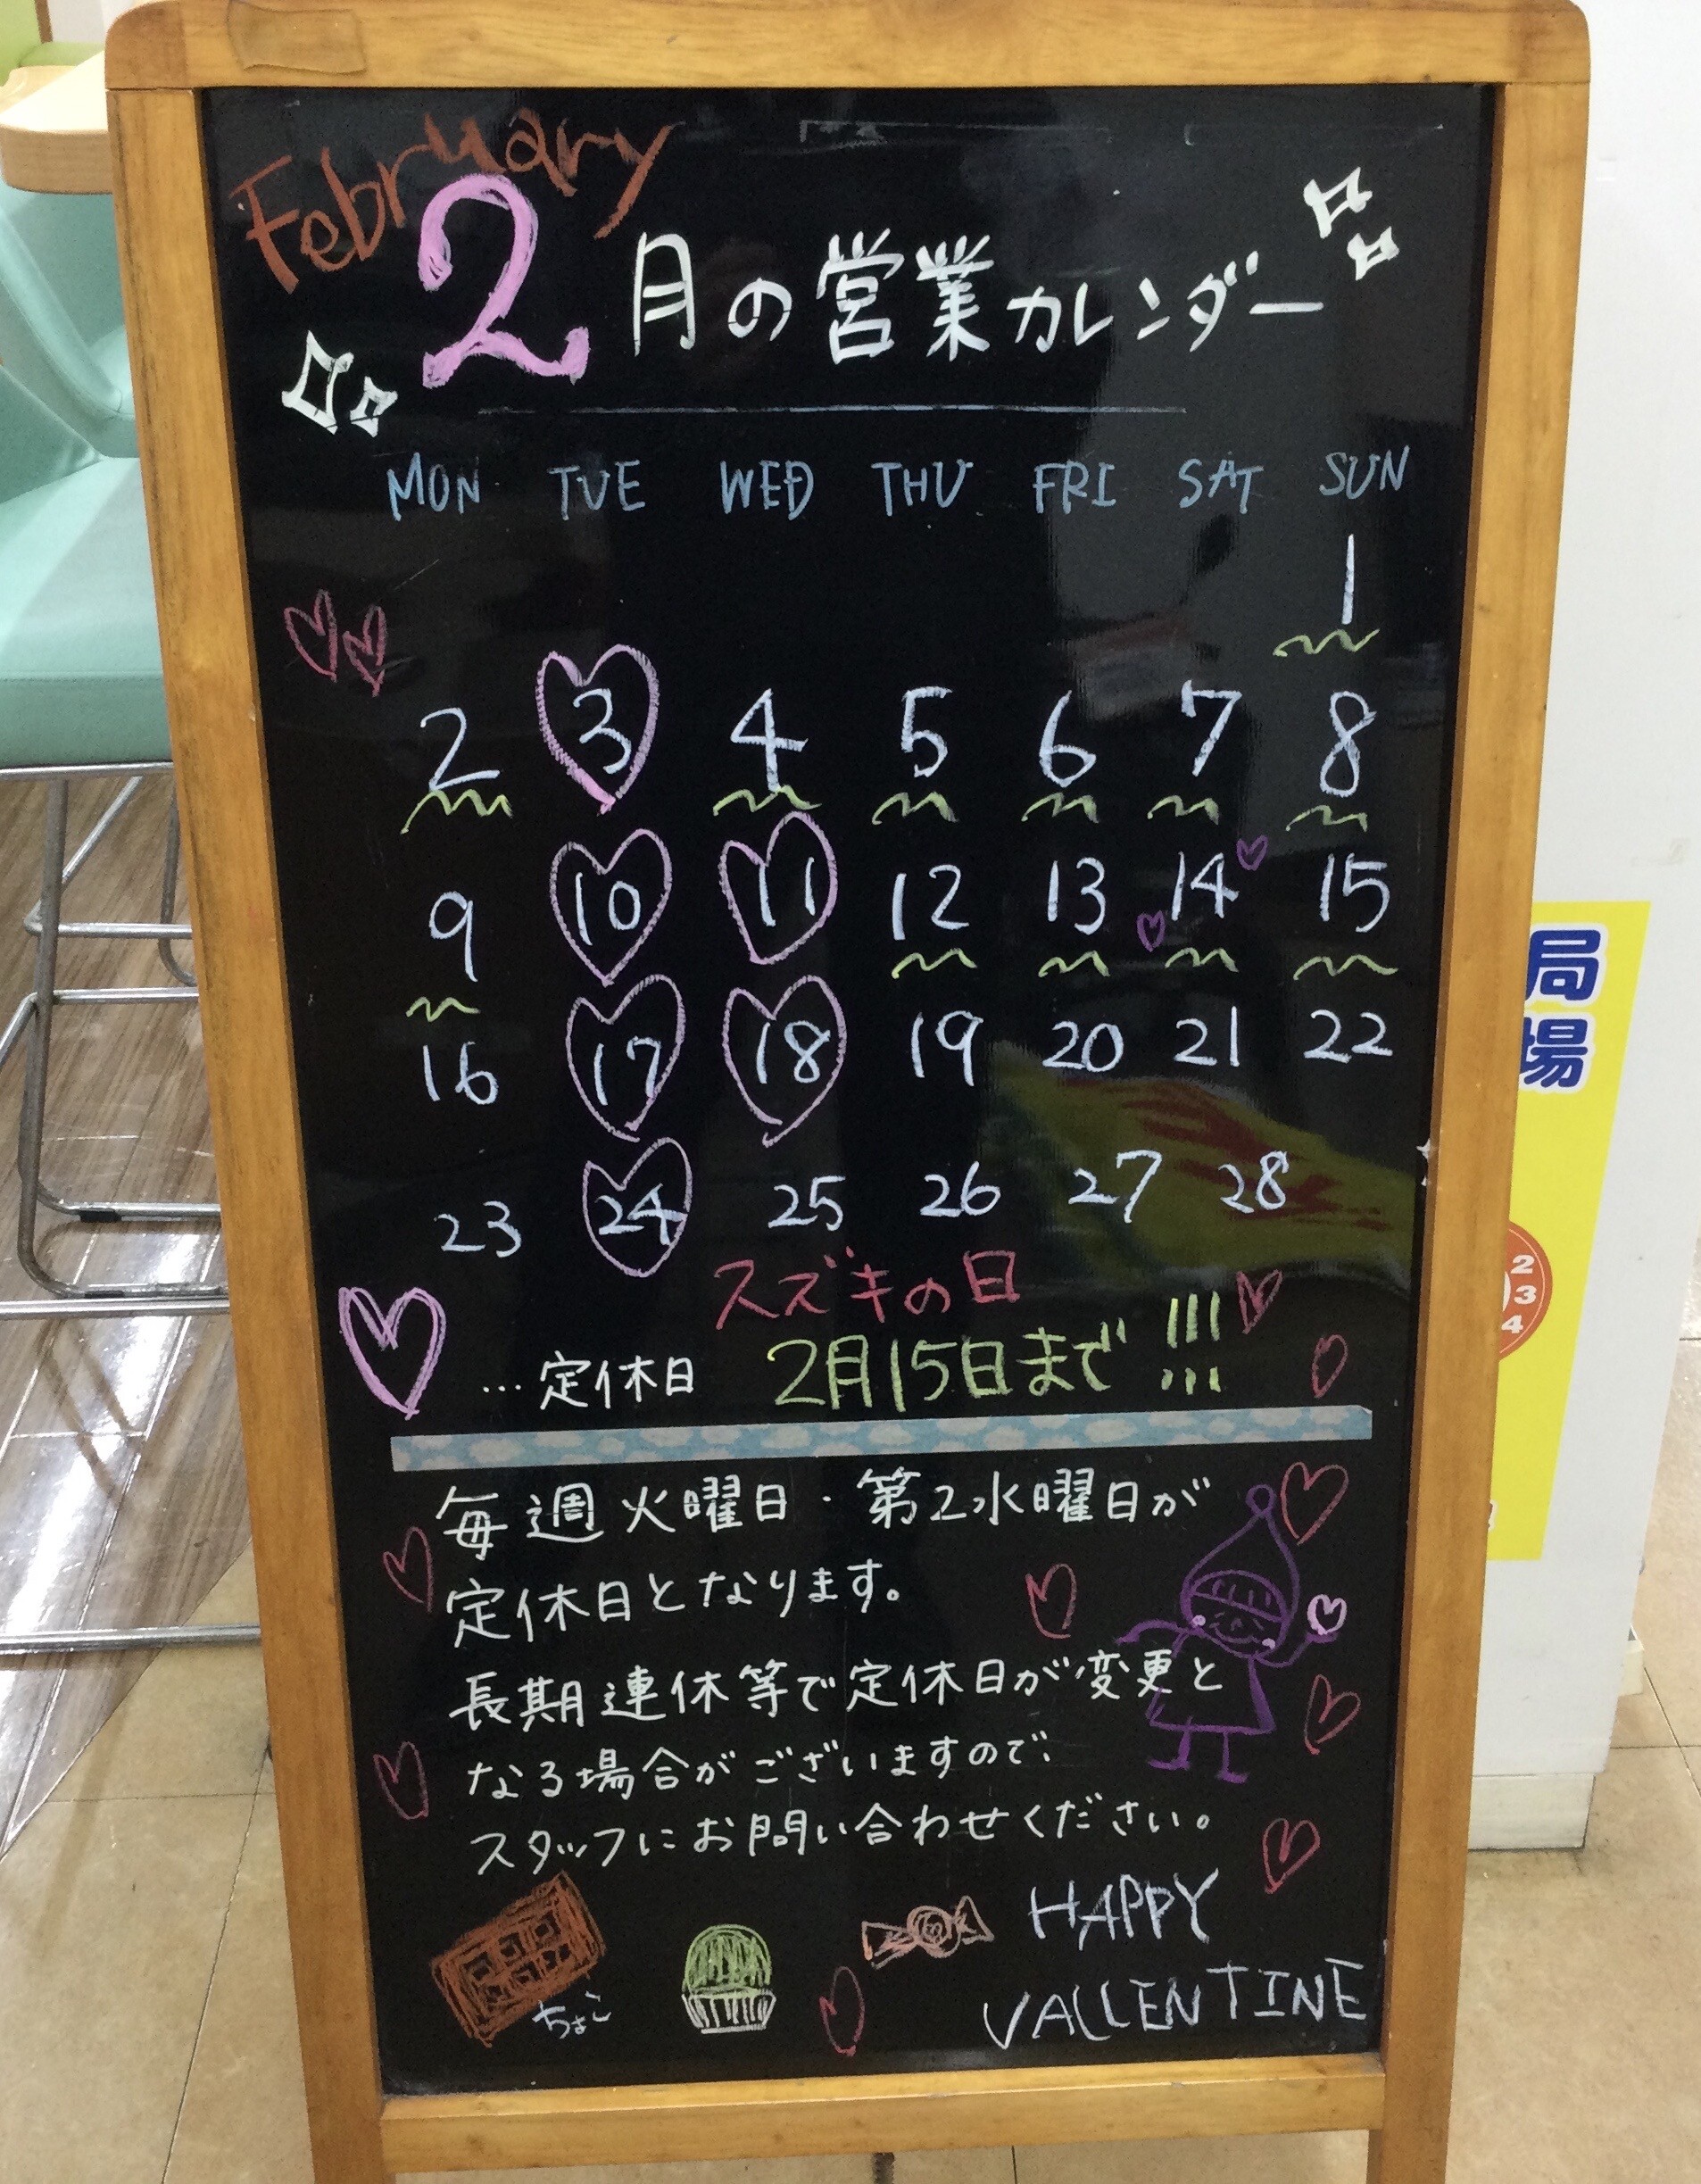 February
2月の営業カレンダー
MON TUE WED THU FRI SAT SUN
1
2 3 4 5 6 7 8
9 10 11 12 13 14 15
16 17 18 19 20 21 22
23 24 25 26 27 28
スズキの日
…定休日 2月15日まで!!!
毎週火曜日・第2水曜日が
定休日となります。
長期連休等で定休日が変更と
なる場合がございますので、
スタッフにお問い合わせください。
ちょこ
HAPPY
VALLENTINE
局
場
2
3
4